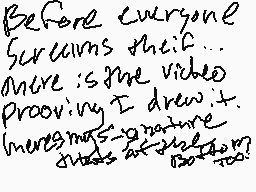 Before everyone
screams theif...
there is the video
prooving I drew it.
theres my signature
thats at the
Bottom
too!